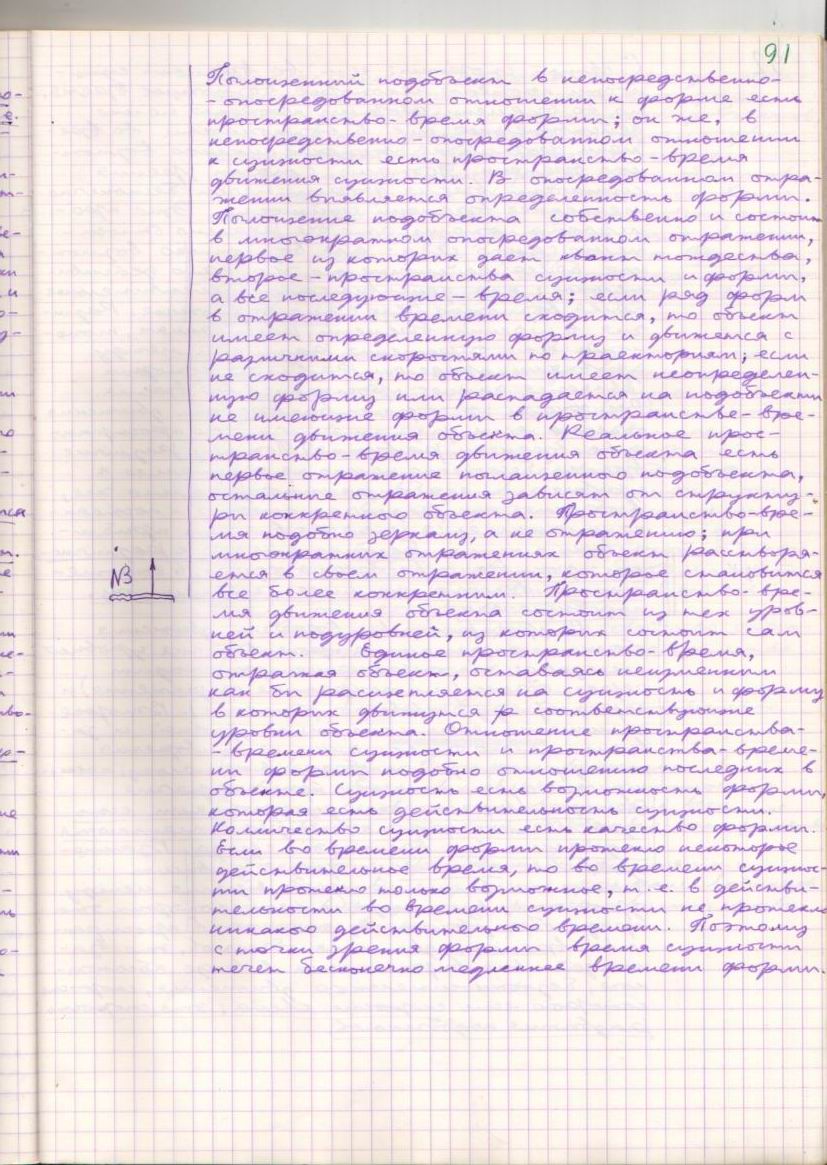 91
Поглощенный подобъект в непосредственно-
-опосредованном отношении к форме есть
пространство-время формы; он же, в
непосредственно-опосредованном отношении
к сущности есть пространство-время
движения сущности. В опосредованном отра-
жении выявляется определенность формы.
Поглощение подобъекта собственно и состоит
в многократном опосредованном отражении,
первое из которых дает квант тождества,
второе - пространства сущности и формы,
а все последующие - время; если ряд форм
в отражении времени сходится, то объект
имеет определенную форму и движется с
различными скоростями по траекториям; если
не сходится, то объект имеет неопределен-
ную форму или распадается на подобъекты
не имеющие формы в пространстве-вре-
мени движения объекта. Реальное прос-
транство-время движения объекта есть
первое отражение поглощенного подобъекта,
остальные отражения зависят от структу-
ры конкретного объекта. Пространство-вре-
мя подобно зеркалу, а не отражению; при
многократных отражениях объект растворя-
ется в своем отражении, которое становится
все более конкретным. Пространство-вре-
мя движения объекта состоит из тех уров-
ней и подуровней, из которых состоит сам
объект. Единое пространство-время,
отражая объект, оставаясь неизменным
как бы расщепляется на сущность и форму
в которых движутся соответствующие
уровни объекта. Отношение пространства-
-времени сущности и пространства-време-
ни формы подобно отношению последних в
объекте. Сущность есть возможность формы,
которая есть действительность сущности.
Количество сущности есть качество формы.
Если во времени формы протекло некоторое
действительное время, то во времени сущнос-
ти протекло только возможное, т.е. в действи-
тельности во времени сущности не протекло
никакого действительного времени. Поэтому
с точки зрения формы время сущности
течет бесконечно медленнее времени формы.